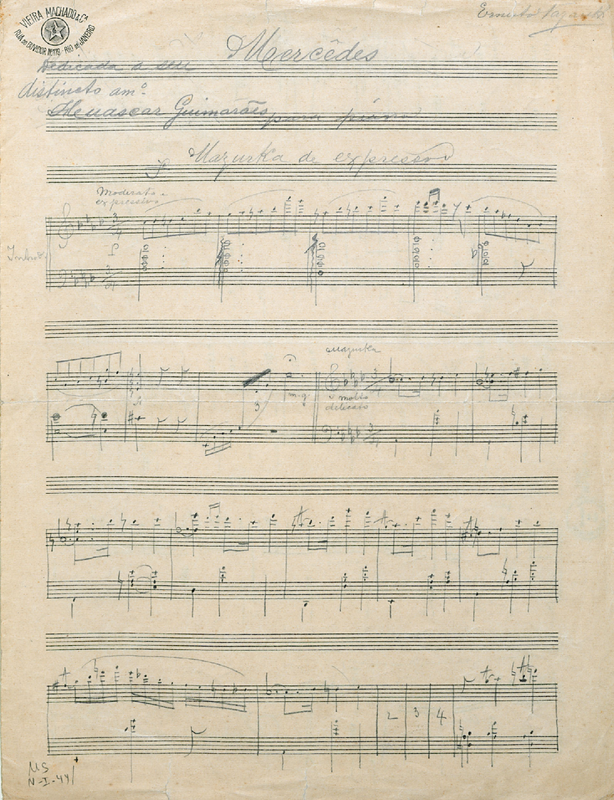 VIEIRA MACHADO & Cª
RUA DO OUVIDOR Nº 179 · RIO DE JANEIRO
Mercêdes
Dedicada a seu
distincto amº
Guimarães para piano
Mazurka de expressão
Moderato
expressivo
3
m.g.
Mazurka
molto
delicato
2 3 4
MS
N-I-44